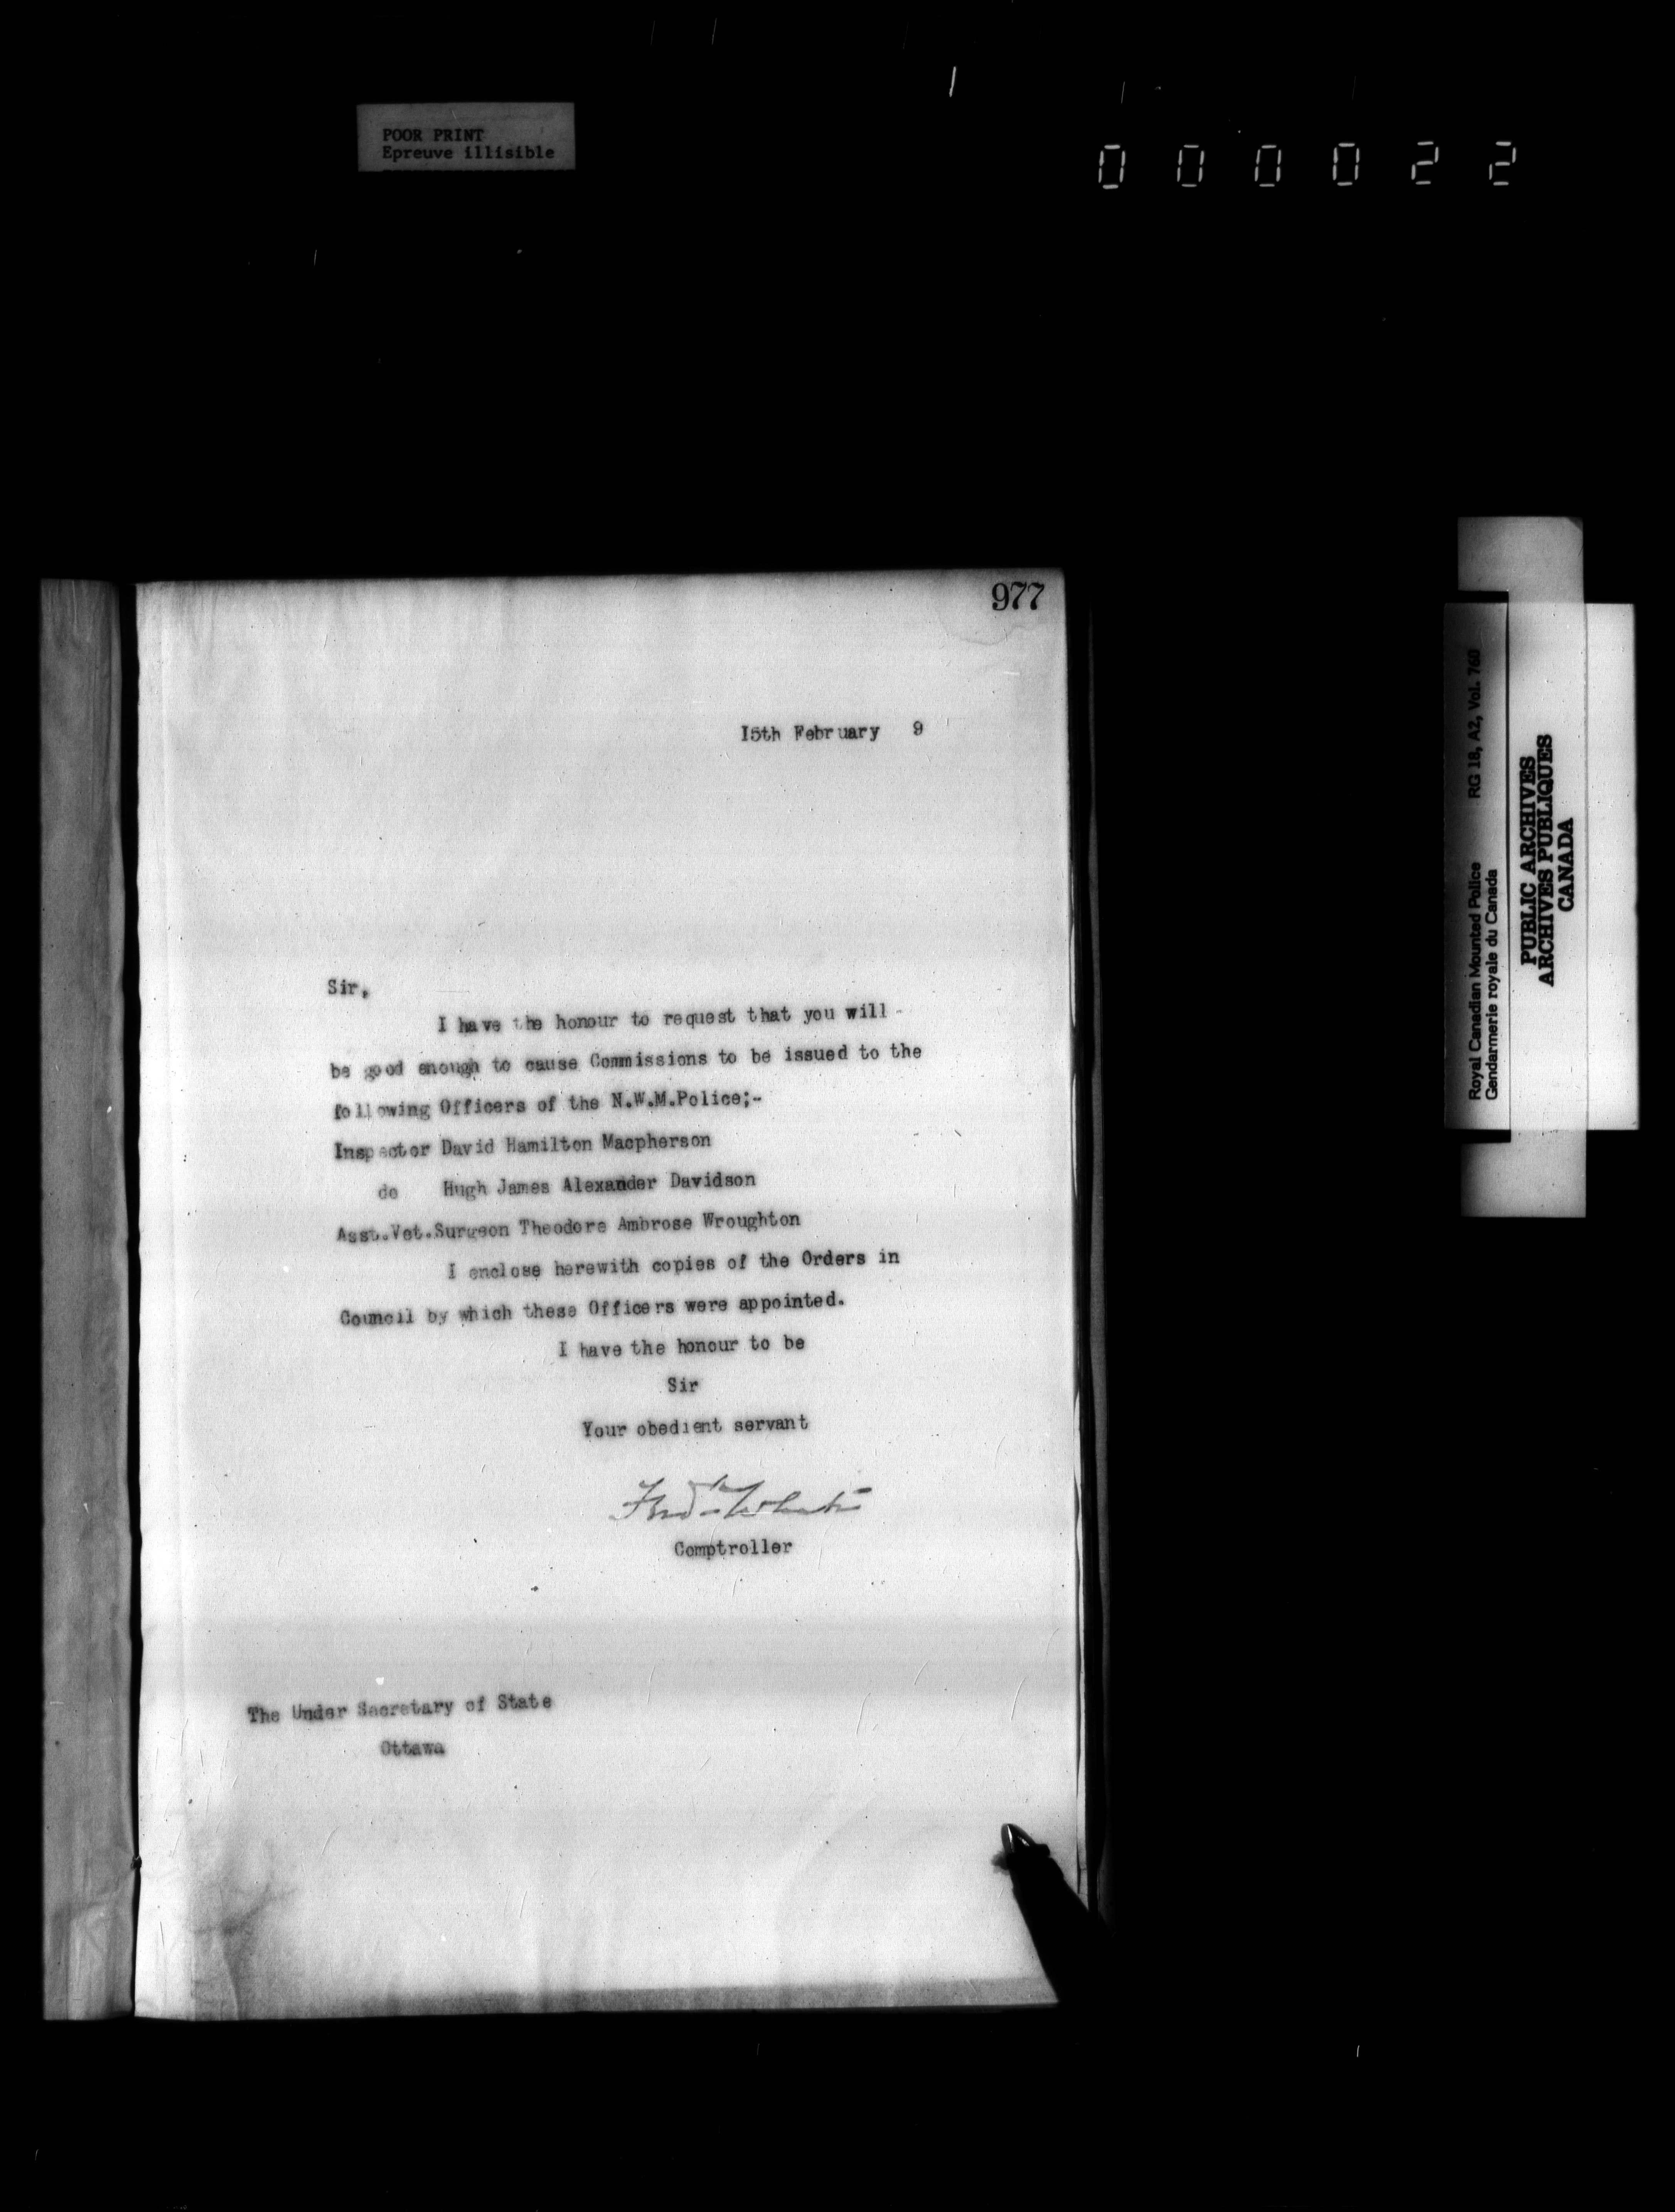 POOR PRINT
Epreuve illisible
000022
977
15th February 9
Sir,
I have the honour to request that you will
be good enough to cause Commissions to be issued to the
following Officers of the N.W.M.Police;-
Inspector David Hamilton Macpherson
do Hugh James Alexander Davidson
Asst.Vet.Surgeon Theodore Ambrose Wroughton
I enclose herewith copies of the Orders in
Council by which these Officers were appointed.
I have the honour to be
Sir
Your obedient servant
Fred White
Comptroller
The Under Secretary of State
Ottawa
Royal Canadian Mounted Police RG 18, A2, Vol. 760
Gendarmerie royale du Canada
PUBLIC ARCHIVES
ARCHIVES PUBLIQUES
CANADA